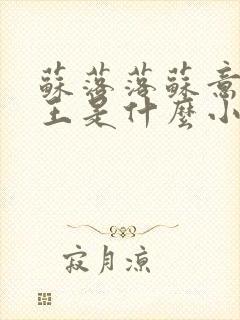 蘇落落蘇意
王是什麼小
寂月凉